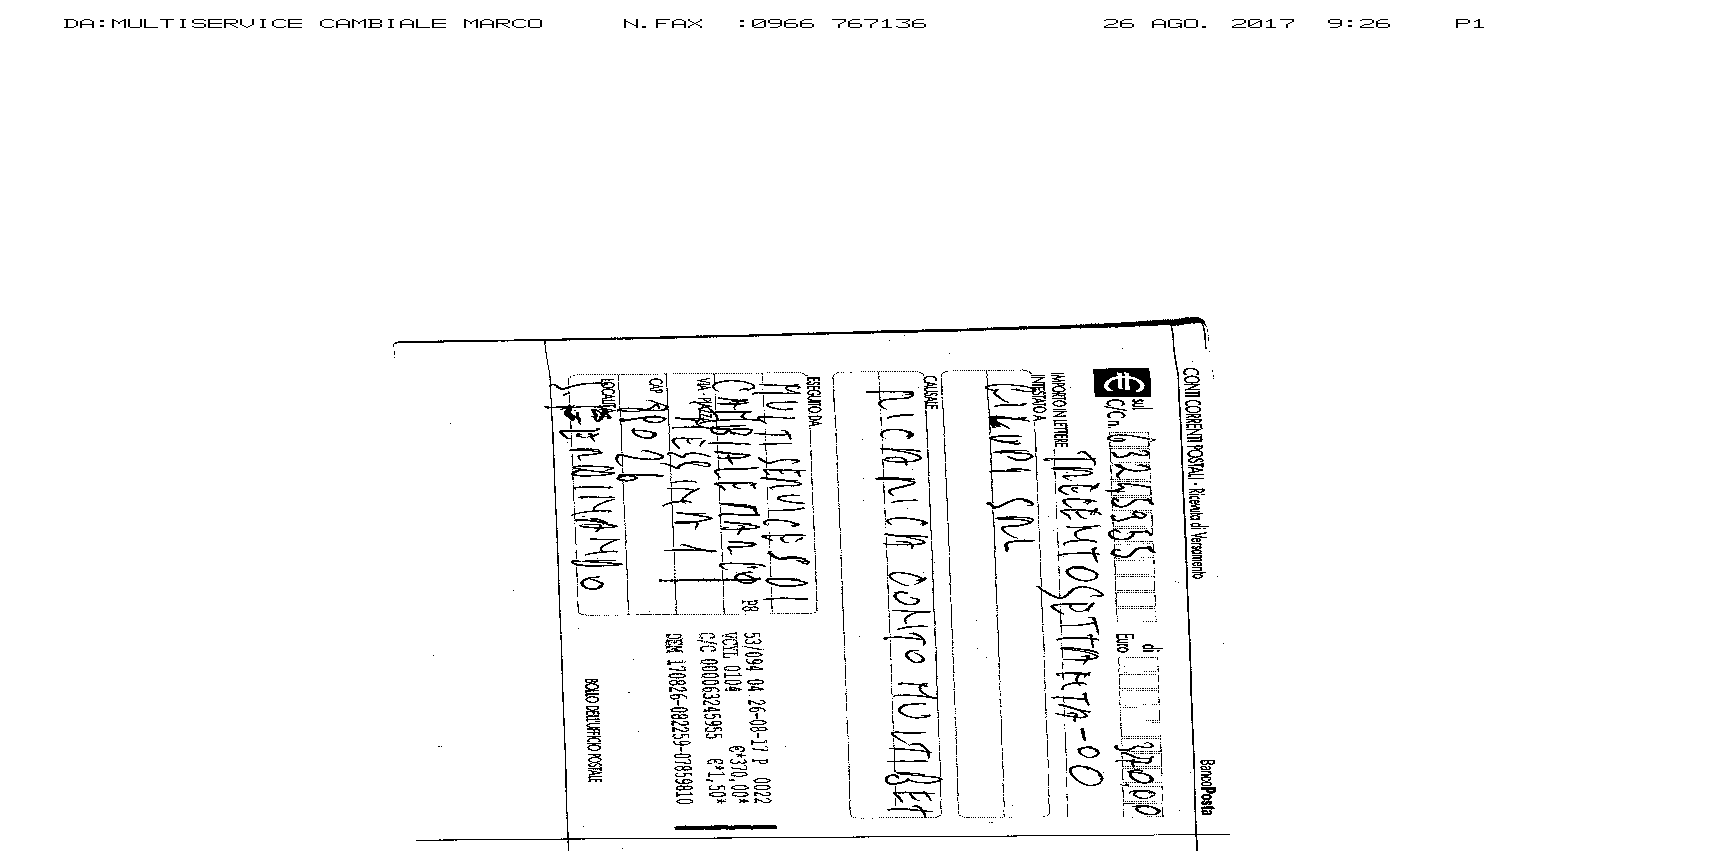 DA:MULTISERVICE CAMBIALE MARCO N.FAX :0966 767136 26 AGO. 2017 9:26 P1
CONTI CORRENTI POSTALI - Ricevuta di Versamento BancoPosta
sul C/C n. di Euro 370,00
IMPORTO IN LETTERE TRECENTOSETTANTA-00
INTESTATO A
SRL
CAUSALE
RICARICA CONTO MULTIBET
ESEGUITO DA
MULTISERVICES DI
CAMBIALE MARCO
VIA - PIAZZA MESSINA 1
CAP
LOCALITÀ
53/094 04 26-08-17 P 0022
VCYL 0104 €*370,00*
C/C 000063245955 €*1,50*
DEM 170826-082259-07859810
BOLLO DELL'UFFICIO POSTALE